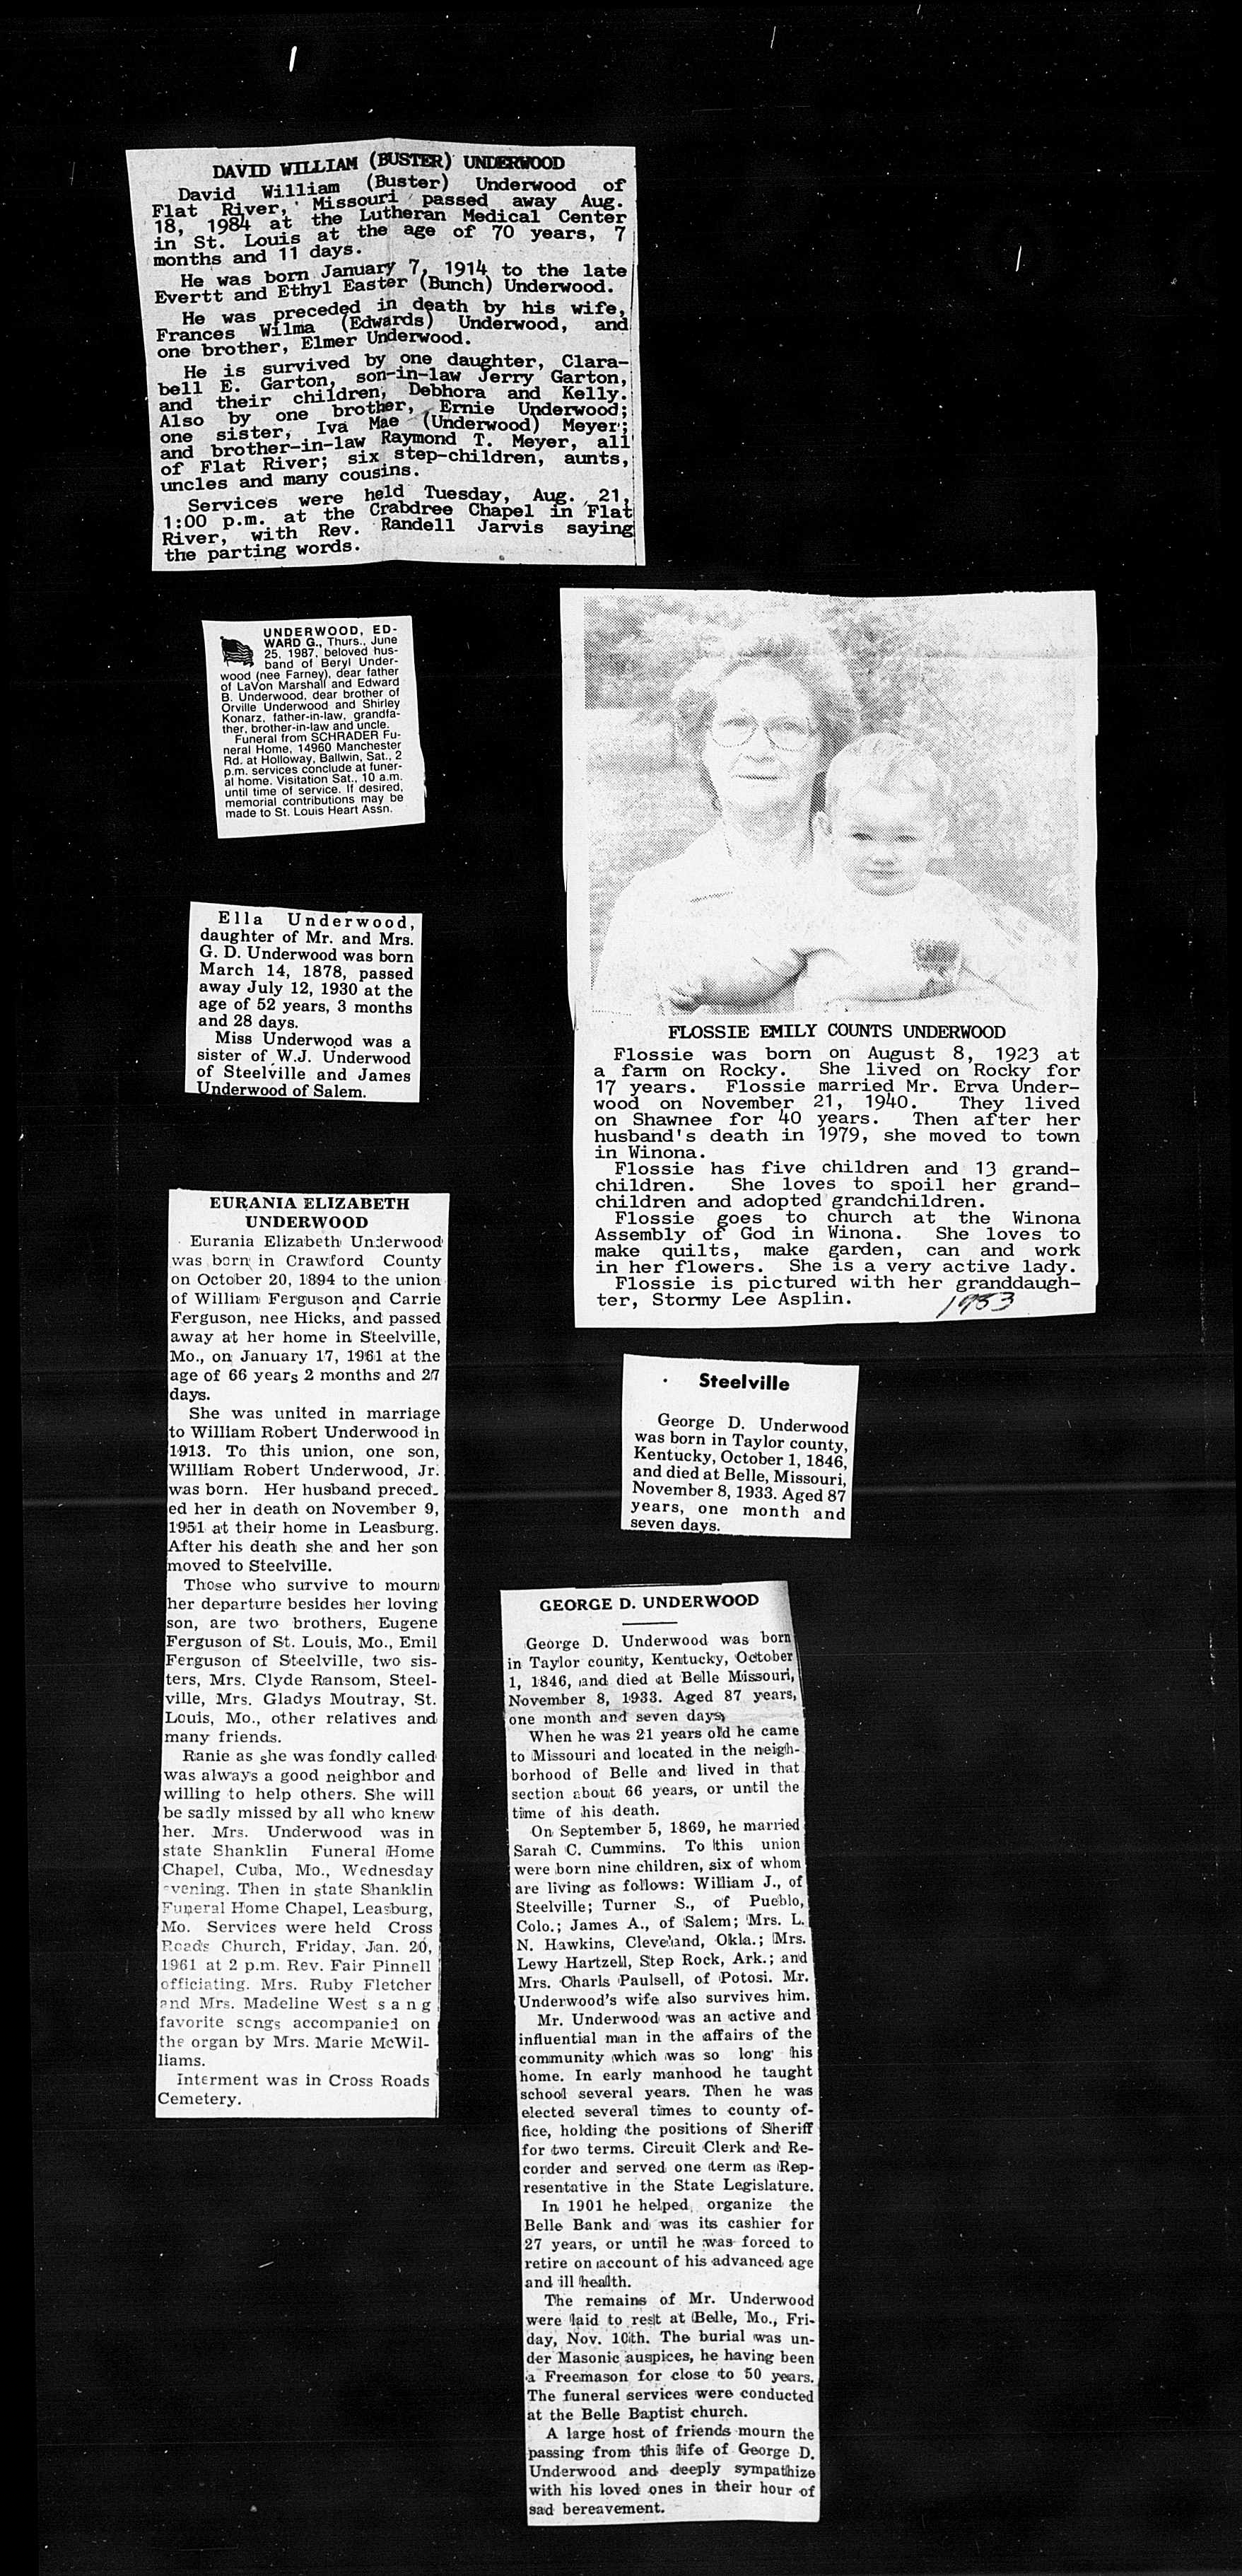 DAVID WILLIAM (BUSTER) UNDERWOOD
David William (Buster) Underwood of
Flat River, Missouri passed away Aug.
18, 1984 at the Lutheran Medical Center
in St. Louis at the age of 70 years, 7
months and 11 days.
He was born January 7, 1914 to the late
Evertt and Ethyl Easter (Bunch) Underwood.
He was preceded in death by his wife,
Frances Wilma (Edwards) Underwood, and
one brother, Elmer Underwood.
He is survived by one daughter, Clara-
bell E. Garton, son-in-law Jerry Garton,
and their children, Debhora and Kelly.
Also by one brother, Ernie Underwood;
one sister, Iva Mae (Underwood) Meyer;
and brother-in-law Raymond T. Meyer, all
of Flat River; six step-children, aunts,
uncles and many cousins.
Services were held Tuesday, Aug. 21,
1:00 p.m. at the Crabdree Chapel in Flat
River, with Rev. Randell Jarvis saying
the parting words.
UNDERWOOD, ED-
WARD G., Thurs., June
25, 1987, beloved hus-
band of Beryl Under-
wood (nee Farney), dear father
of LaVon Marshall and Edward
B. Underwood, dear brother of
Orville Underwood and Shirley
Konarz, father-in-law, grandfa-
ther, brother-in-law and uncle.
Funeral from SCHRADER Fu-
neral Home, 14960 Manchester
Rd. at Holloway, Ballwin, Sat., 2
p.m. services conclude at funer-
al home. Visitation Sat., 10 a.m.
until time of service. If desired,
memorial contributions may be
made to St. Louis Heart Assn.
Ella Underwood,
daughter of Mr. and Mrs.
G. D. Underwood was born
March 14, 1878, passed
away July 12, 1930 at the
age of 52 years, 3 months
and 28 days.
Miss Underwood was a
sister of W.J. Underwood
of Steelville and James
Underwood of Salem.
EURANIA ELIZABETH
UNDERWOOD
Eurania Elizabeth Underwood
was born in Crawford County
on October 20, 1894 to the union
of William Ferguson and Carrie
Ferguson, nee Hicks, and passed
away at her home in Steelville,
Mo., on January 17, 1961 at the
age of 66 years 2 months and 27
days.
She was united in marriage
to William Robert Underwood in
1913. To this union, one son,
William Robert Underwood, Jr.
was born. Her husband preced-
ed her in death on November 9,
1951 at their home in Leasburg.
After his death she and her son
moved to Steelville.
Those who survive to mourn
her departure besides her loving
son, are two brothers, Eugene
Ferguson of St. Louis, Mo., Emil
Ferguson of Steelville, two sis-
ters, Mrs. Clyde Ransom, Steel-
ville, Mrs. Gladys Moutray, St.
Louis, Mo., other relatives and
many friends.
Ranie as she was fondly called
was always a good neighbor and
willing to help others. She will
be sadly missed by all who knew
her. Mrs. Underwood was in
state Shanklin Funeral Home
Chapel, Cuba, Mo., Wednesday
evening. Then in state Shanklin
Funeral Home Chapel, Leasburg,
Mo. Services were held Cross
Roads Church, Friday, Jan. 20,
1961 at 2 p.m. Rev. Fair Pinnell
officiating. Mrs. Ruby Fletcher
and Mrs. Madeline West sang
favorite songs accompanied on
the organ by Mrs. Marie McWil-
liams.
Interment was in Cross Roads
Cemetery.
FLOSSIE EMILY COUNTS UNDERWOOD
Flossie was born on August 8, 1923 at
a farm on Rocky. She lived on Rocky for
17 years. Flossie married Mr. Erva Under-
wood on November 21, 1940. They lived
on Shawnee for 40 years. Then after her
husband's death in 1979, she moved to town
in Winona.
Flossie has five children and 13 grand-
children. She loves to spoil her grand-
children and adopted grandchildren.
Flossie goes to church at the Winona
Assembly of God in Winona. She loves to
make quilts, make garden, can and work
in her flowers. She is a very active lady.
Flossie is pictured with her granddaugh-
ter, Stormy Lee Asplin.
1983
Steelville
George D. Underwood
was born in Taylor county,
Kentucky, October 1, 1846,
and died at Belle, Missouri,
November 8, 1933. Aged 87
years, one month and
seven days.
GEORGE D. UNDERWOOD
George D. Underwood was born
in Taylor county, Kentucky, October
1, 1846, and died at Belle Missouri,
November 8, 1933. Aged 87 years,
one month and seven days,
When he was 21 years old he came
to Missouri and located in the neigh-
borhood of Belle and lived in that
section about 66 years, or until the
time of his death.
On September 5, 1869, he married
Sarah C. Cummins. To this union
were born nine children, six of whom
are living as follows: William J., of
Steelville; Turner S., of Pueblo,
Colo.; James A., of Salem; Mrs. L.
N. Hawkins, Cleveland, Okla.; Mrs.
Lewy Hartzell, Step Rock, Ark.; and
Mrs. Charls Paulsell, of Potosi. Mr.
Underwood's wife also survives him.
Mr. Underwood was an active and
influential man in the affairs of the
community which was so long his
home. In early manhood he taught
school several years. Then he was
elected several times to county of-
fice, holding the positions of Sheriff
for two terms. Circuit Clerk and Re-
corder and served one term as Rep-
resentative in the State Legislature.
In 1901 he helped organize the
Belle Bank and was its cashier for
27 years, or until he was forced to
retire on account of his advanced age
and ill health.
The remains of Mr. Underwood
were laid to rest at Belle, Mo., Fri-
day, Nov. 10th. The burial was un-
der Masonic auspices, he having been
a Freemason for close to 50 years.
The funeral services were conducted
at the Belle Baptist church.
A large host of friends mourn the
passing from this life of George D.
Underwood and deeply sympathize
with his loved ones in their hour of
sad bereavement.